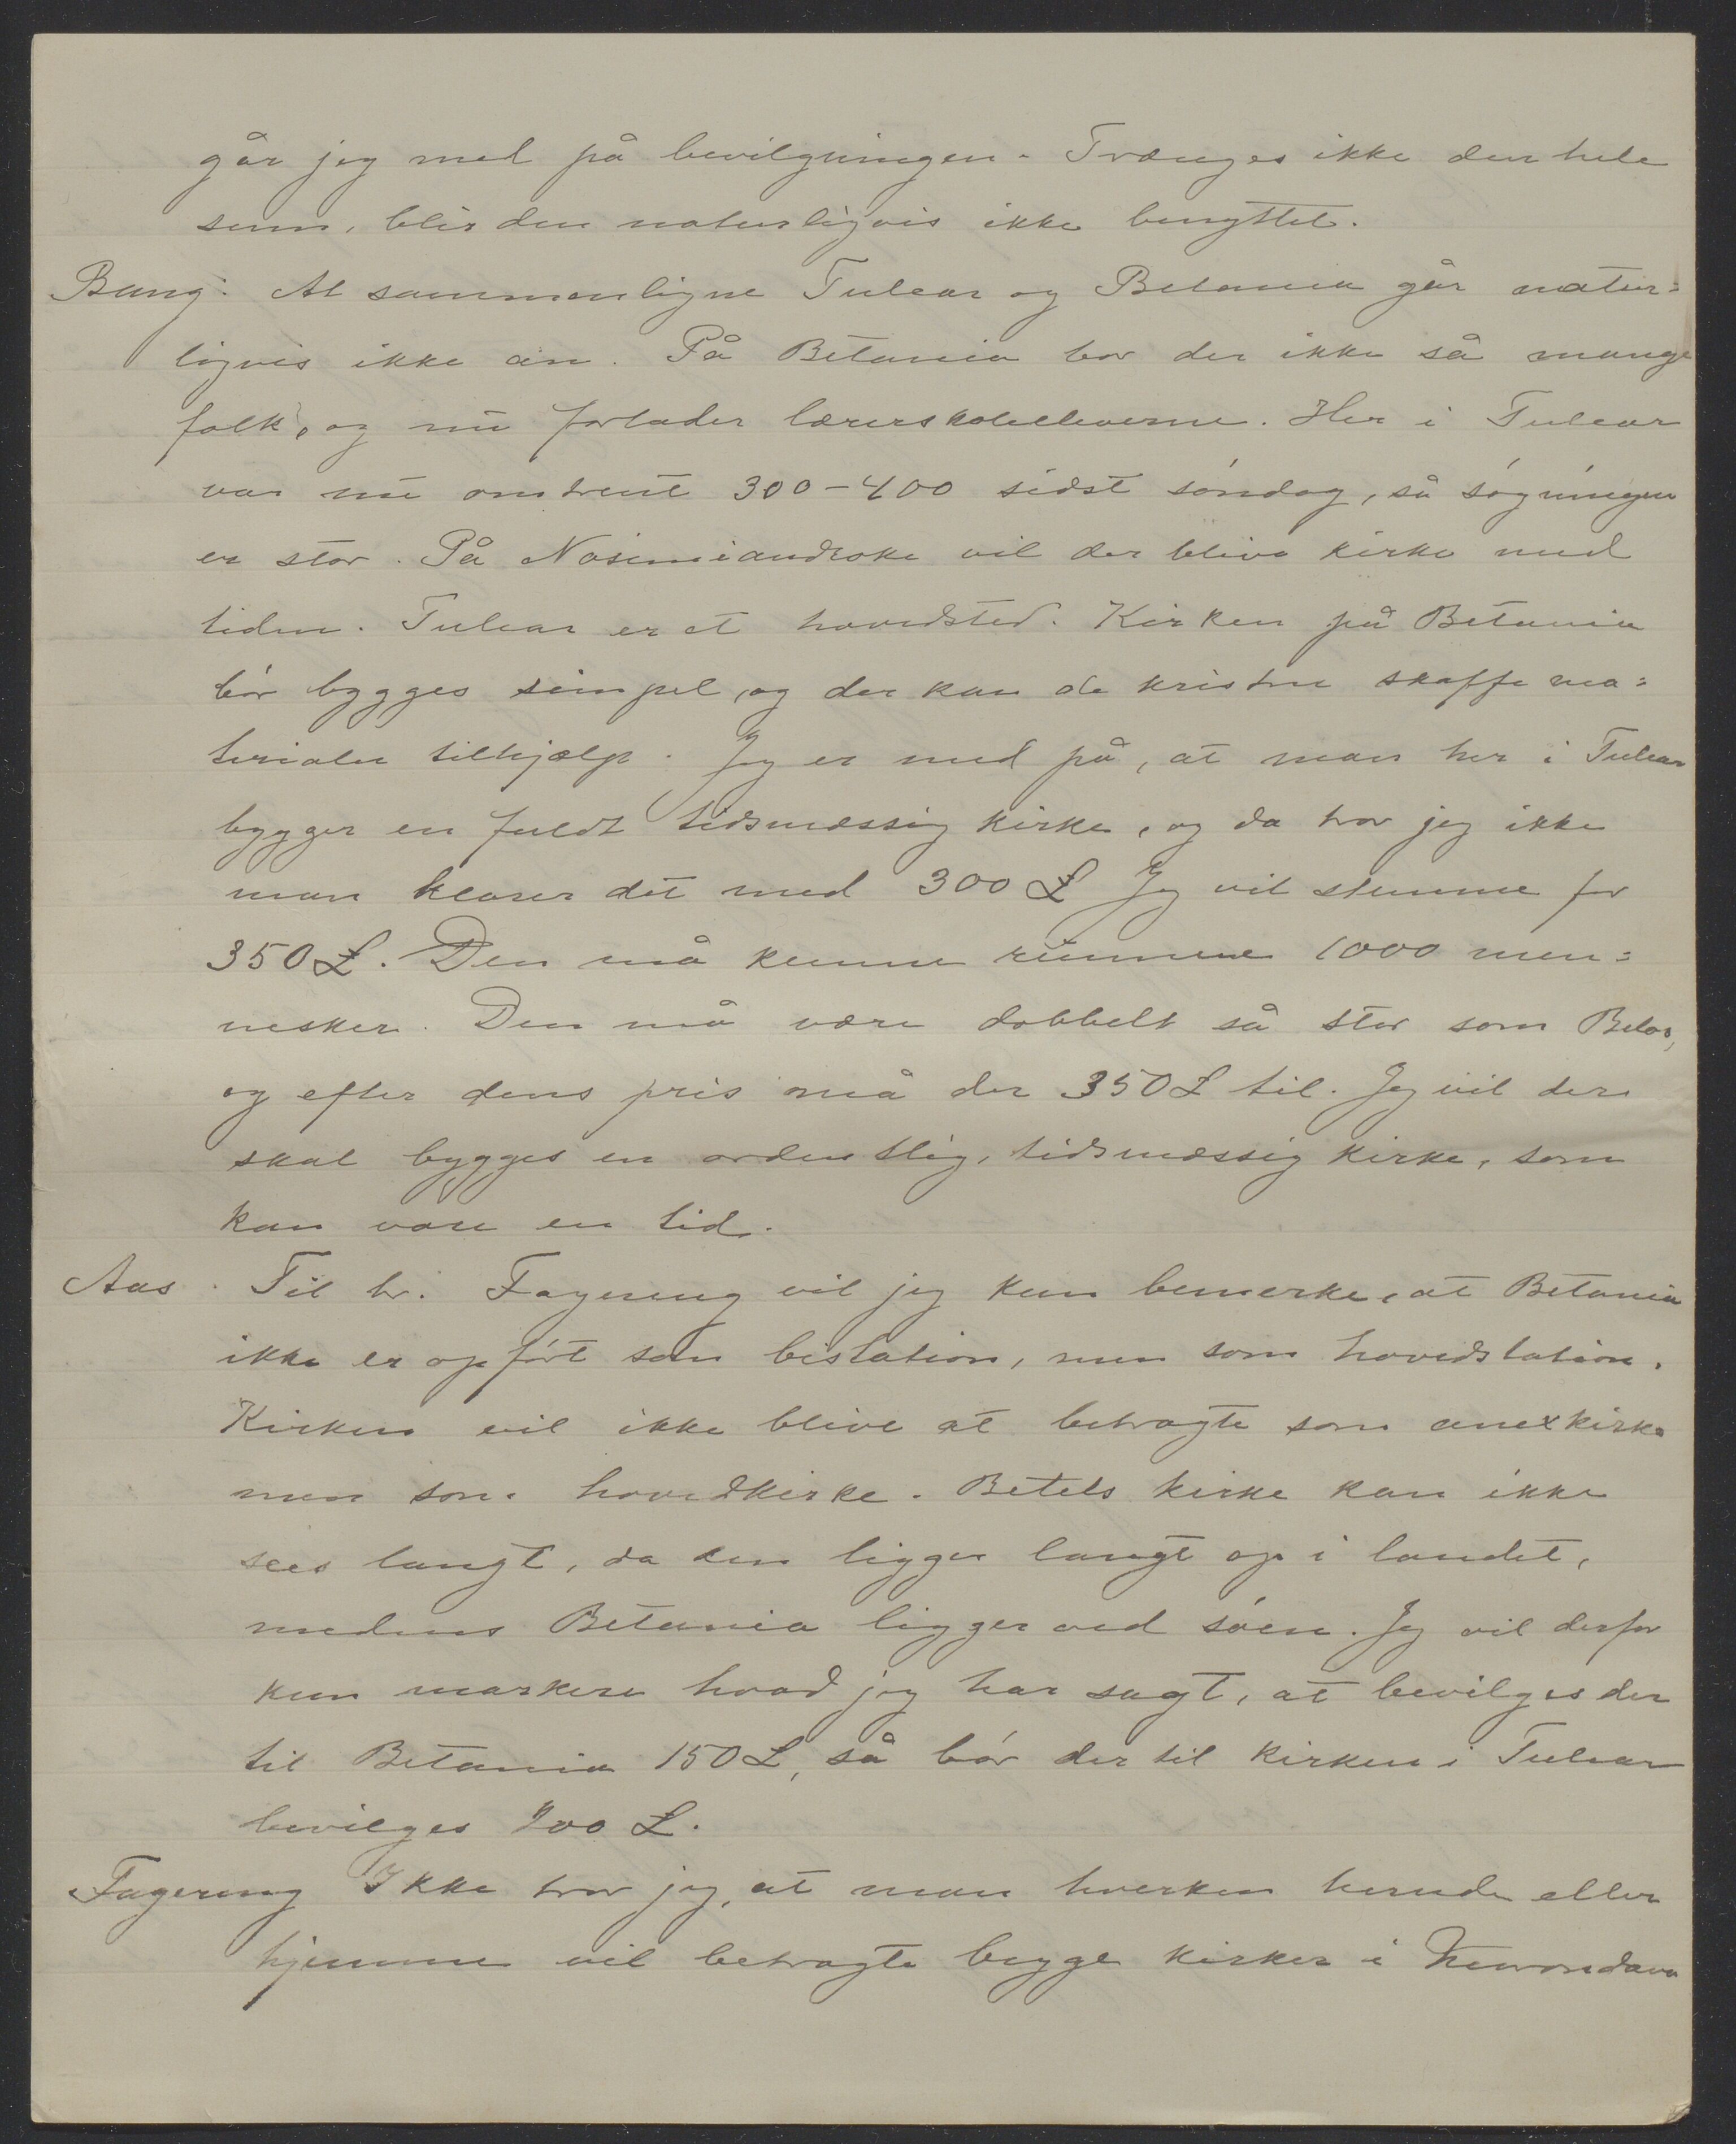 går jeg med på bevilgningen. Trænges ikke den hele
sum, blir den naturligvis ikke benyttet.
Bang: At sammenligne Tulear og Betania går natur-
ligvis ikke an. På Betania bor der ikke så mange
folk, og nu forlader lærerskoleeleverne. Her i Tulear
var nu omtrent 300-400 sidst søndag, så søgningen
er stor. På Nosimiandroka vil der blive kirke med
tiden. Tulear er et hovedsted. Kirken på Betania
bør bygges simpel, og der kan de kristne skaffe ma-
terialer tilhjælp. Jeg er med på, at man her i Tulear
bygger en fuldt tidsmæssig kirke, og da tror jeg ikke
man klarer det med 300 £ Jeg vil stemme for
350 £. Den må kunne rumme 1000 men-
nesker. Den må være dobbelt så stor som Belos,
og efter dens pris må der 350 £ til. Jeg vil der
skal bygges en ordentlig, tidsmæssig kirke, som
kan vare en tid.
Aas. Til hr. Fagereng vil jeg kun bemerke, at Betania
ikke er opført som bistation, men som hovedstation.
Kirken vil ikke blive at betragte som anexkirke
men som hovedkirke. Betels kirke kan ikke
sees langt, da den ligger langt op i landet,
medens Betania ligger ved søen. Jeg vil derfor
kun markere hvad jeg har sagt, at bevilges der
til Betania 150 £, så bør der til kirken i Tulear
bevilges 400 £.
Fagereng Ikke tror jeg, at man hverken herude eller
hjemme vil betragte begge kirker i Morondava